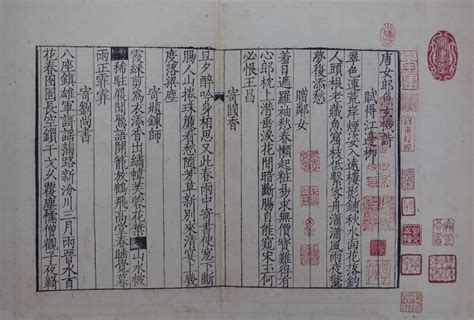 唐女郎魚玄機詩
賦得江邊柳
翠色連荒岸煙姿入遠樓影鋪秋水面花落釣
人頭根老藏魚窟枝低繫客舟瀟瀟風雨夜驚
夢復添愁
贈鄰女
羞日遮羅袖愁春懶起粧易求無價寶難得有
心郎枕上潛垂淚花間暗斷腸自能窺宋玉何
必恨王昌
寄國香
旦夕醉吟身相思又此春雨中寄書使窻下斷
腸人山捲珠簾看愁隨芳草新別來清宴上幾
度落梁塵
寄題鍊師
霞綵剪為衣添香出繡幃芙蓉花葉山水帔
稀駐履聞鶯語開籠放鶴飛高堂春睡覺暮
雨正霏霏
寄劉尚書
八座鎮雄軍歌謠滿路新汾川三月雨晉水百
花春囹圄長空鎖干戈久覆塵儒僧觀子夜羇